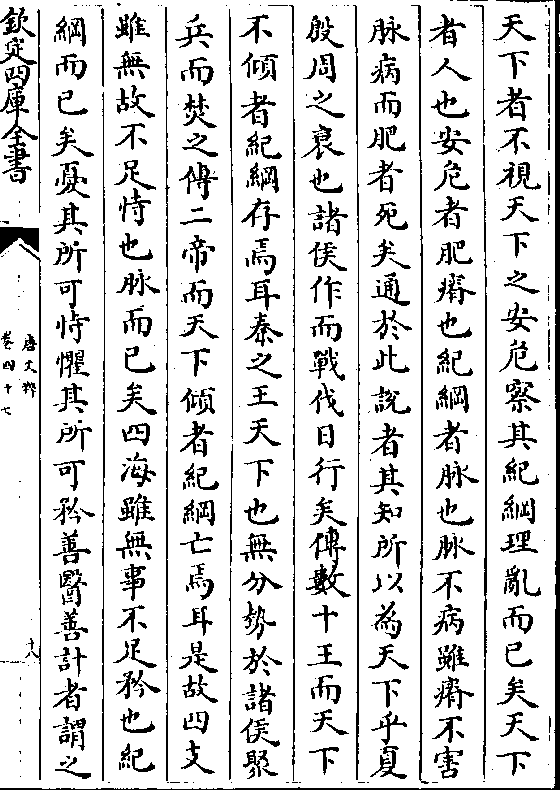 天下者不視天下之安危察其紀綱理亂而已矣天下
者人也安危者肥瘠也紀綱者脉也脉不病雖瘠不害
脉病而肥者死矣通於此説者其知所以為天下乎夏
殷周之衰也諸侯作而戰伐日行矣傳數十王而天下
不傾者紀綱存焉耳秦之王天下也無分勢於諸侯聚
兵而焚之傳二帝而天下傾者紀綱亡焉耳是故四支
雖無故不足恃也脉而已矣四海雖無事不足矜也紀
綱而已矣憂其所可恃懼其所可矜善醫善計者謂之
欽定四庫全書
唐文粹
卷四十七
十八